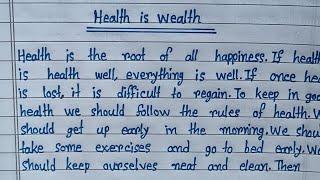 Health is Wealth
Health is the root of all happiness. If health
is health well, everything is well. If once hea
is lost, it is difficult to regain. To keep in good
health we should follow the rules of health. W
should get up early in the morning. We shou
take some exercises and go to bed early. We
should keep ourselves neat and clean. Then